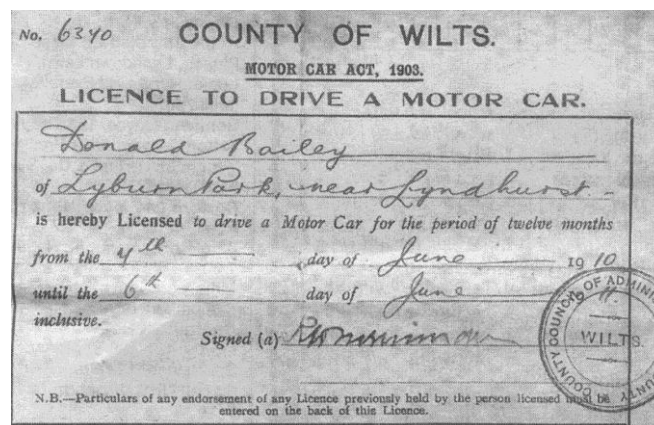 No. 6340 COUNTY OF WILTS.
MOTOR CAR ACT, 1903.
LICENCE TO DRIVE A MOTOR CAR.
Donald Bailey
of Lyburn Park, near Lyndhurst
is hereby Licensed to drive a Motor Car for the period of twelve months
from the 7th day of June 1910
until the 6th day of June
inclusive.
Signed (a)
COUNTY COUNCIL OF WILTS.
N.B.—Particulars of any endorsement of any Licence previously held by the person licensed must be
entered on the back of this Licence.